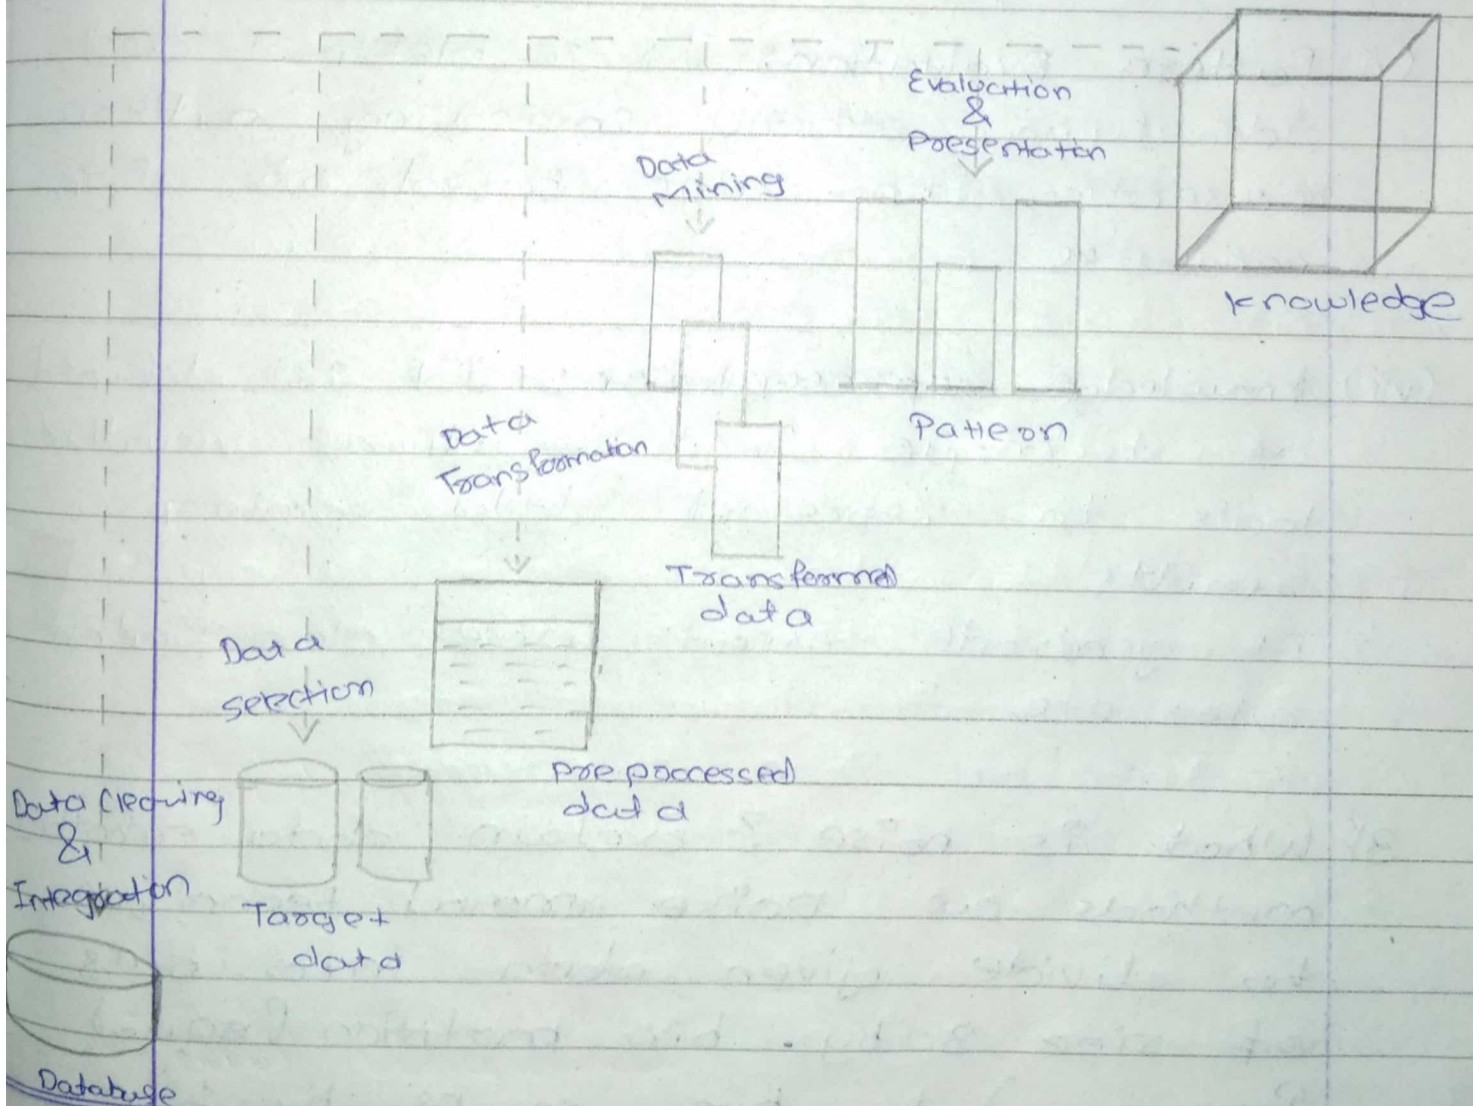 Evaluation
&
Presentation
Data
Mining
Knowledge
Pattern
Data
Transformation
Transformed
data
Data
selection
preprocessed
data
Data Cleaning
&
Integration
Target
data
Database